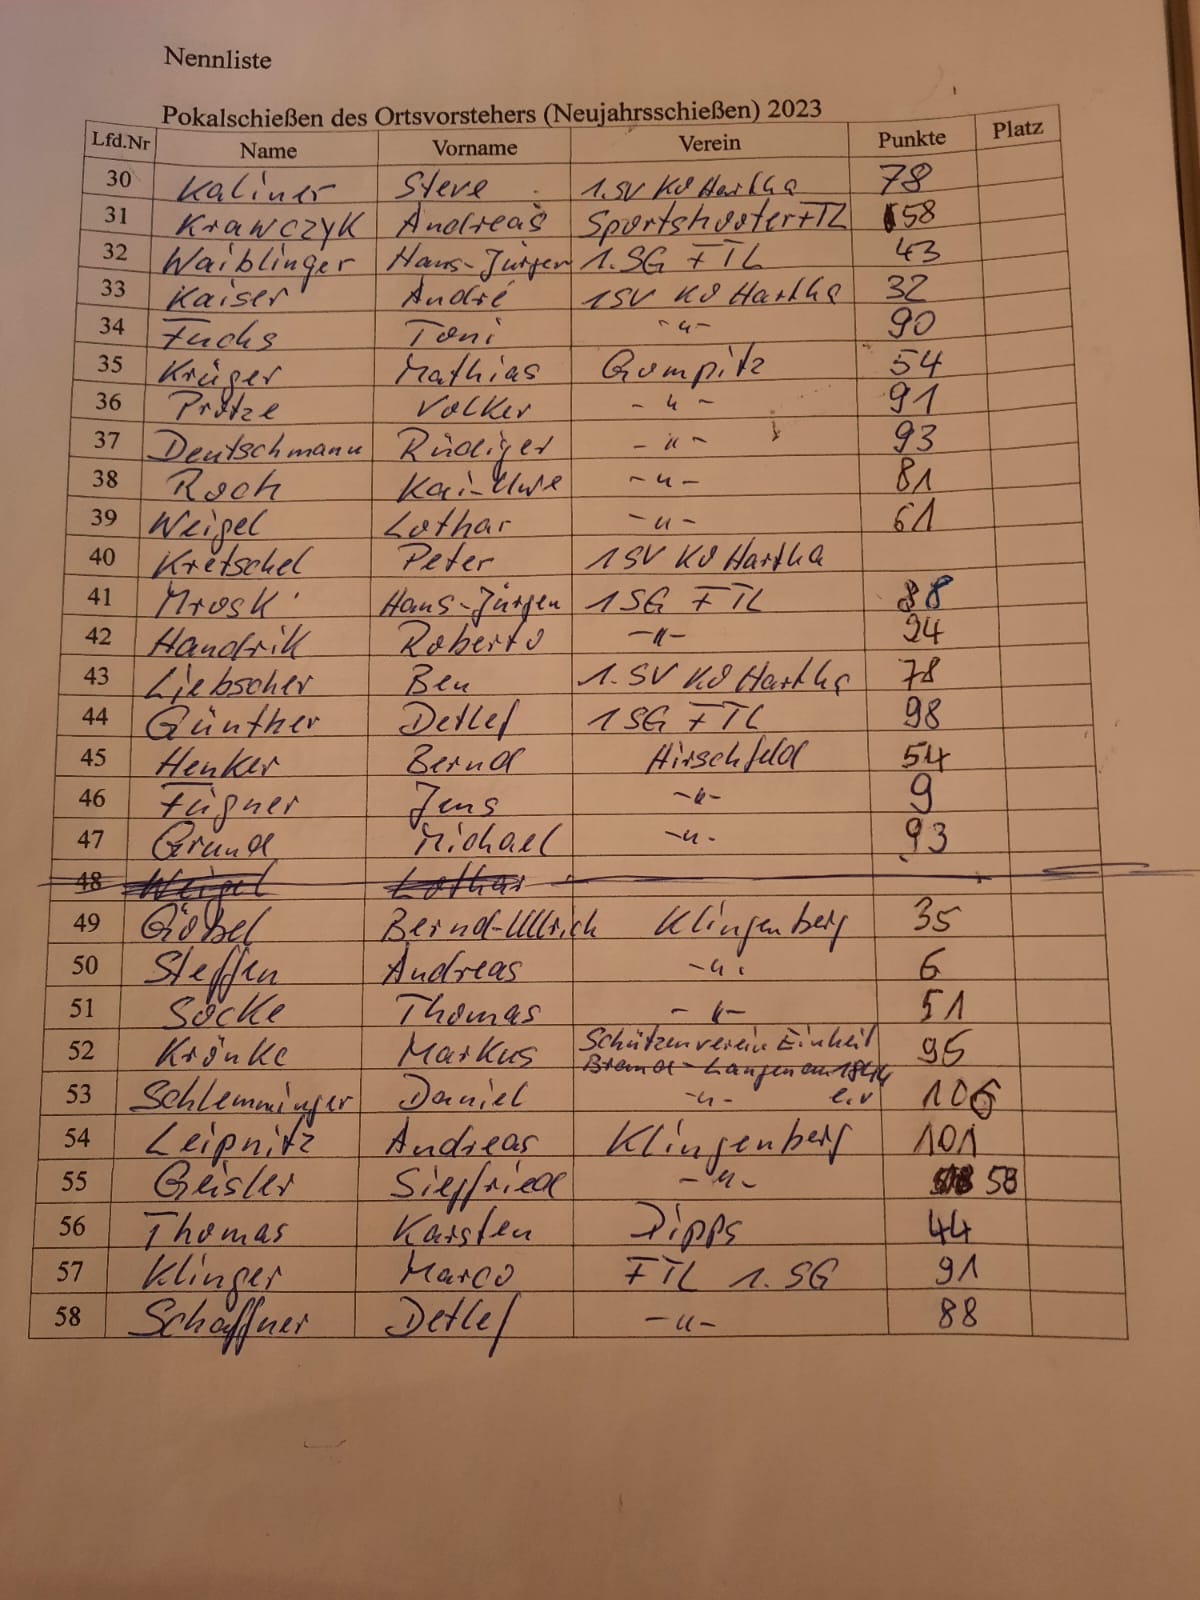 Nennliste
Pokalschießen des Ortsvorstehers (Neujahrsschießen) 2023
Lfd.Nr Name Vorname Verein Punkte Platz
30 Kaliner Steve 1.SV KÖ Hartha 78
31 Krawczyk Andreas Sportshooter FTL 58
32 Waiblinger Hans-Jürgen 1.SG FTL 43
33 Kaiser André 1SV KÖ Hartha 32
34 Fuchs Toni -"- 90
35 Krüger Mathias Gompitz 54
36 Protze Volker -"- 91
37 Deutschmann Rüdiger -"- 93
38 Roch Kai-Uwe -"- 81
39 Weigel Lothar -"- 61
40 Kretschel Peter 1SV KÖ Hartha
41 Mrosk Hans-Jürgen 1SG FTL 88
42 Handrik Roberto -"- 94
43 Liebscher Ben 1.SV KÖ Hartha 78
44 Günther Detlef 1SG FTL 98
45 Henker Bernd Hirschfeld 54
46 Fügner Jens -"- 9
47 Grund Michael -"- 93
48 Weigel Lothar
49 Göbel Bernd-Ullrich Klingenberg 35
50 Steffen Andreas -"- 6
51 Socke Thomas -"- 51
52 Krönke Markus Schützenverein Einheit 95
Brand-Langenau 1844
53 Schlemminger Daniel -"- e.V 106
54 Leipnitz Andreas Klingenberg 101
55 Geisler Siegfried -"- 58
56 Thomas Karsten Dipps 44
57 Klinger Marco FTL 1.SG 91
58 Schaffner Detlef -"- 88